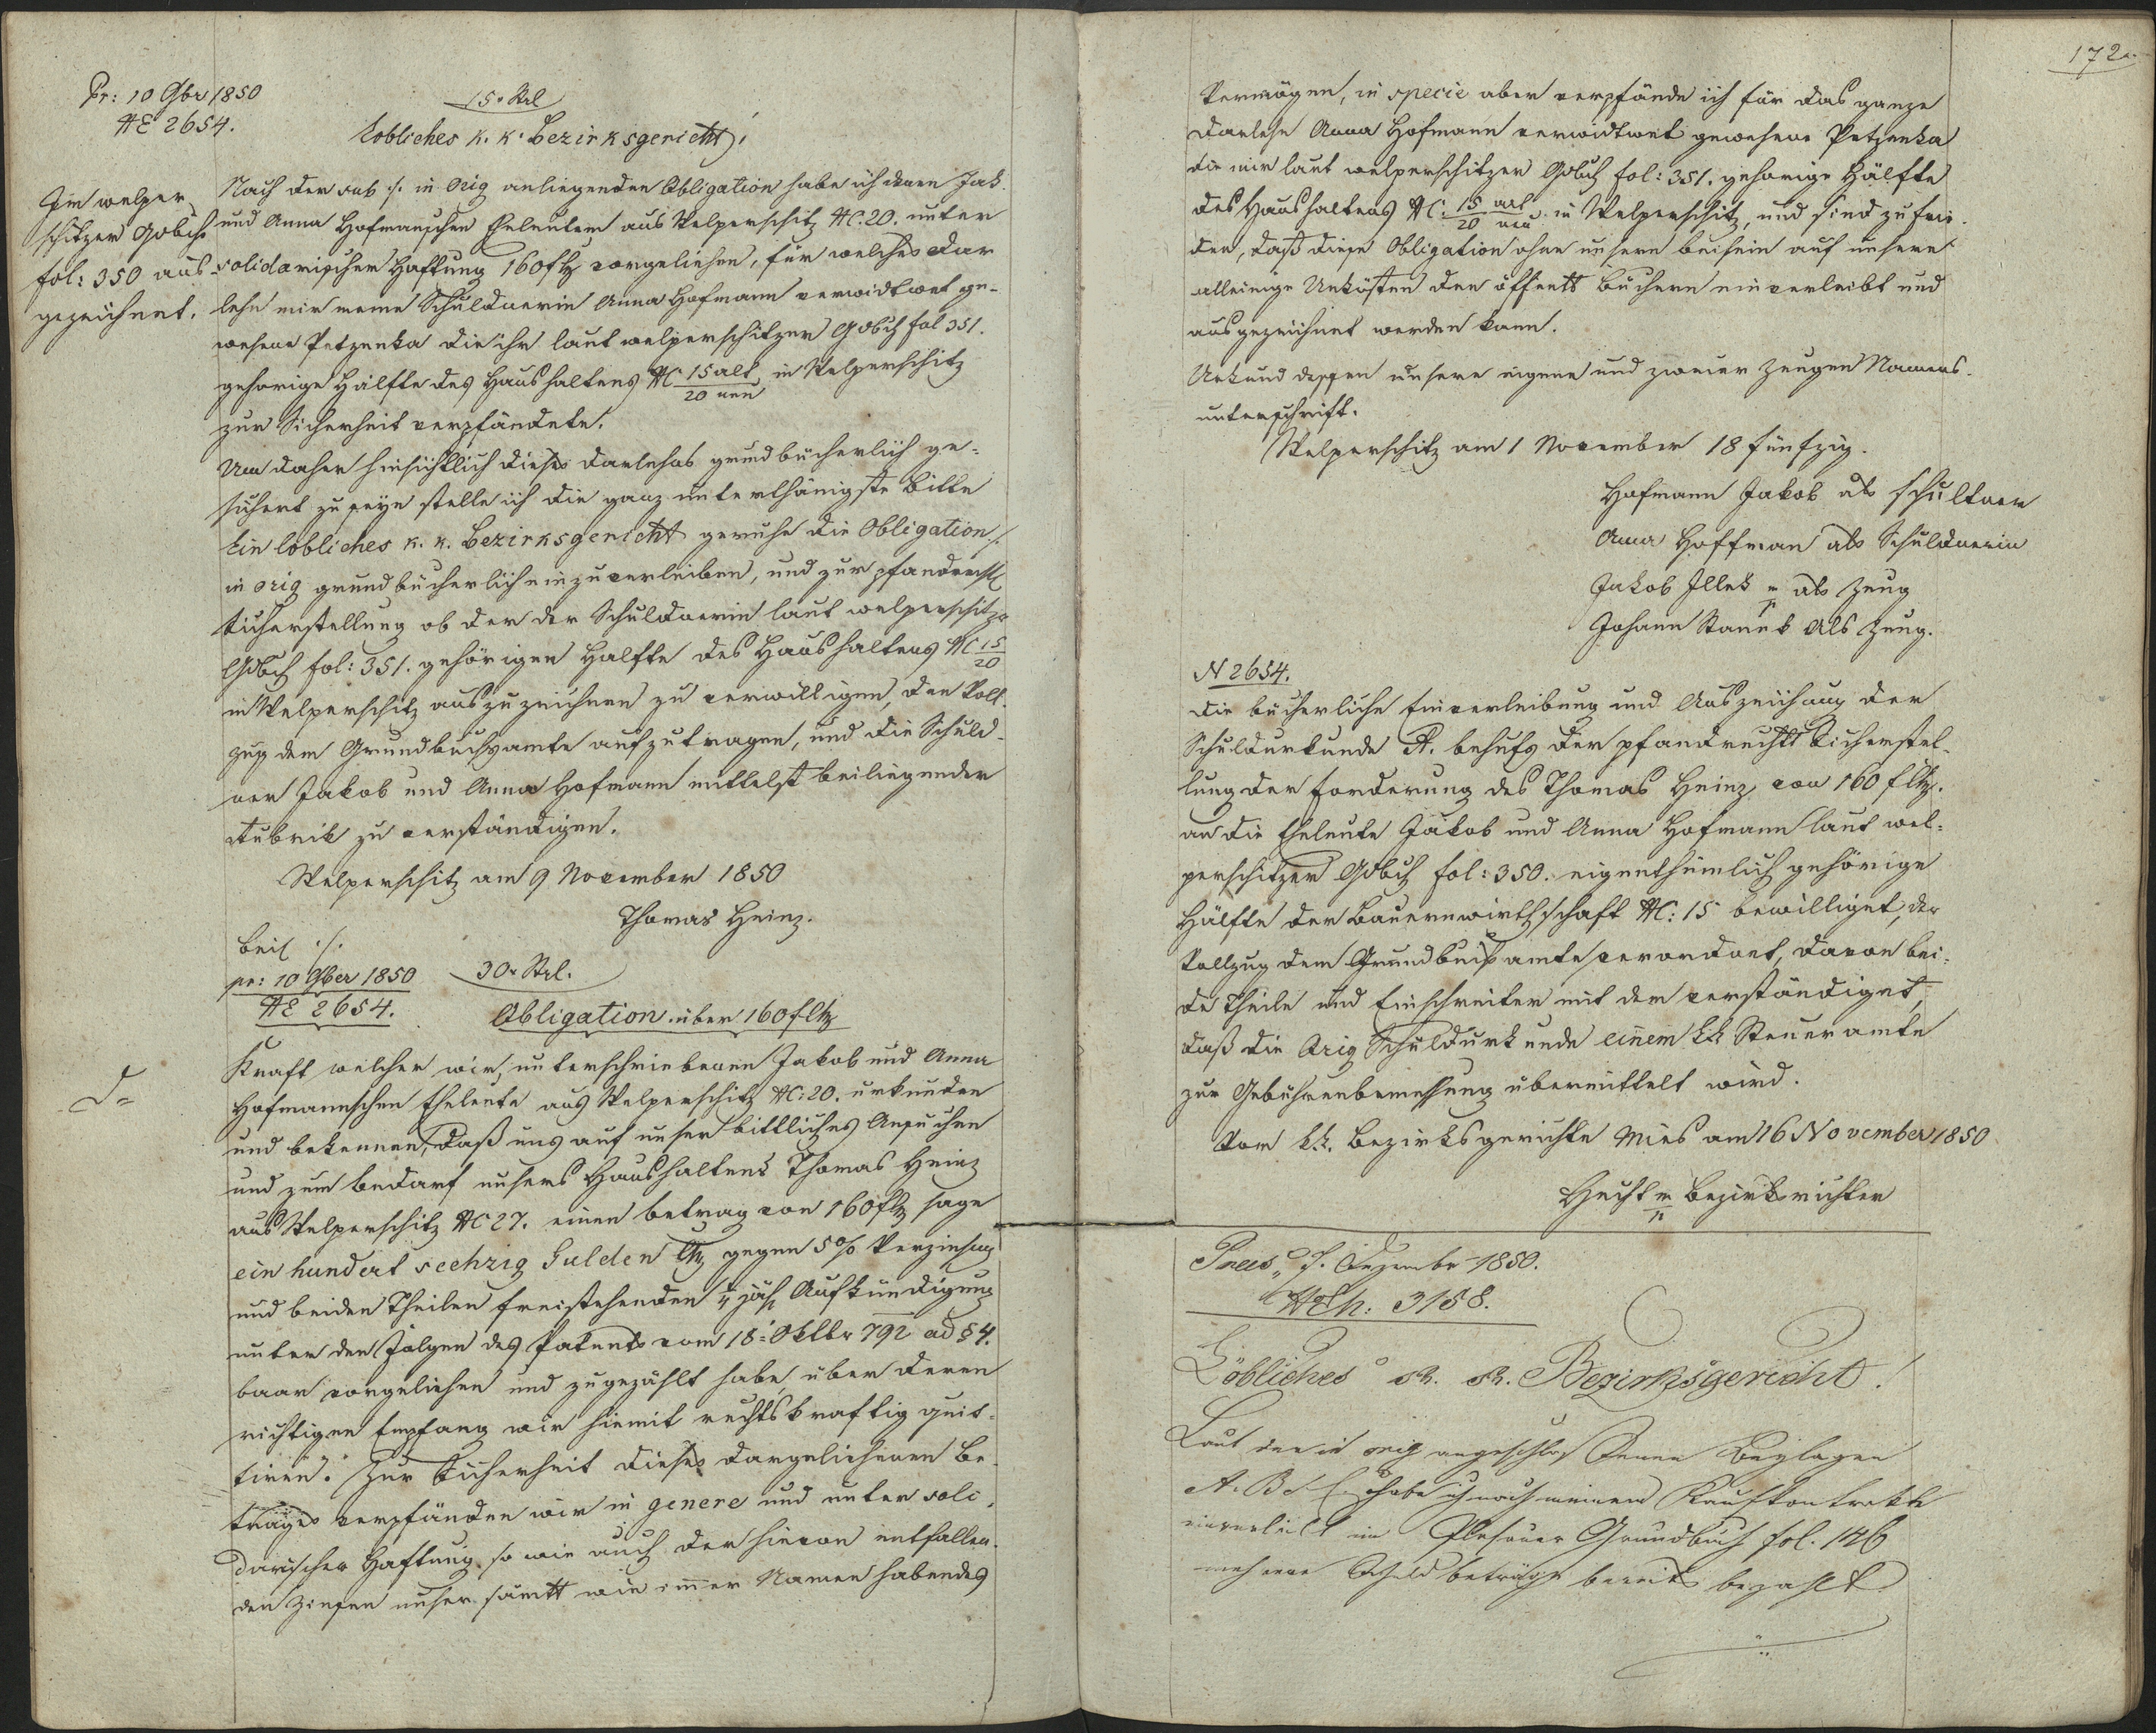 Pr: 10 9br 1850
NE 2654.
15 x Stl
Löbliches k. k. Bezirksgericht!
Im welper
schitzer Gdbche
fol: 350 aus
gezeichnet.
Nach der sub ·/. in Orig anliegenden Obligation habe ich denen Jak.
und Anna Hofmannschen Eheleuten aus Welperschitz NC. 20. unter
solidarischer Haftung 160 f Mz vorgeliehen, für welches Dar
lehn mir meine Schuldnerin Anna Hofmann verwidtwet ge-
wesene Petzenka die ihr laut welperschitzer Gdbch fol 351.
gehorige Hälfte des Haushaltens NC 15 alt / 20 neu in Welperschitz
zur Sicherheit verpfändete.
Um daher hinsichtlich dieses Darlehns grundbücherlich ge-
sichert zu seyn stelle ich die ganz unterthänigste Bitte
Ein löbliches k. k. Bezirksgericht geruhe die Obligation ·/.
in orig grundbücherlich einzuverleiben, und zur pfandrechtl
Sicherstellung ob der der Schuldnerin laut welperschitzr
Gdbch fol: 351. gehörigen Halfte des Haushaltens NC 15/20
in Welperschitz auszuzeichnen zu verwilligen, den Voll-
zug dem Grundbuchsamte aufzutragen, und die Schuld-
ner Jakob und Anna Hofmann mittelst beiliegender
Rubrik zu verständigen.
Welperschitz am 9 November 1850
Thomas Heinz.
Beil ·/.
pr: 10 9ber 1850
NE 2654.
30 x Stl.
Obligation über 160 f Mz
Kraft welcher wir unterschriebenen Jakob und Anna
Hofmannschen Eheleute aus Welperschitz NC: 20. urkunden
und bekennen, daß uns auf unser bittliches Ansuchen
und zum Bedarf unsers Haushaltens Thomas Heinz
aus Welperschitz NC 27. einen Betrag von 160 f Mz sage
ein hundert sechzig Gulden Mz gegen 5% Verzinsung
und beiden Theilen freistehenden ¼ jäh Aufkündigung
unter den Folgen des Patents vom 18: Oktbr 792 ad § 4.
baar vorgeliehen und zugezählt habe, über deren
richtigen Empfang wir hiemit rechtskraftig quit-
tiren. Zur Sicherheit dieses dargeliehenen Be
trages verpfänden wir in genere und unter soli-
darischer Haftung so wie auch der hievon entfallen-
den Zinsen unser sämtt wie immer Namen habendes
172.
Vermögen, in specie aber verpfände ich für das ganze
Darlehn Anna Hofmann verwidtwet gewesene Petzenka
die mir laut welperschitzer Gdbch fol: 351. gehorige Hälfte
des Haushaltens NC: 15 alt / 20 neu in Welperschitz, und sind zufrie-
den, daß diese Obligation ohne unsern Beisein auf unsere
alleinige Unkösten den öffentt Büchern einverleibt und
ausgezeichnet werden kann.
Urkund dessen unsere eigene und zweier Zeugen Namens-
unterschrift.
Welperschitz am 1 November 18 fünfzig.
Hofmann Jakob als schultner
Anna Hoffman als Schuldnerin
Jakob Illek als Zeug
Johann Stanek als Zeug.
N 2654.
Die bücherliche Einverleibung und Auszeichnung der
Schuldurkunde A. behufs der pfandrechtt Sicherstel-
lung der Forderung des Thomas Heinz von 160 f Mz.
an die Eheleute Jakob und Anna Hofmann laut wel-
perschitzer Gdbch fol: 350. eigenthümlich gehörige
Hälfte der Bauernwirthschaft NC: 15 bewilliget, der
Vollzug dem Grundbuchsamte verordnet, davon bei-
de Theile und Einschreiter mit dem verständiget,
daß die Orig Schuldurkunde einem kk Steueramte
zur Gebührenbemessung übermittelt wird.
Vom k.k. Bezirksgerichte Mies am 16 November 1850
Hecht Bezirksrichter
Praes. 7. Dezembr 1850.
NEh: 3158.
Löbliches k. k. Bezirksgericht!
Laut der in orig angeschlossenen Beylagen
A. B & C. habe ich nach meinem Kaufkontrakte
einverleibt im Grundbuch fol. 146
mehrere Schuldbeträge bereits bezahlt